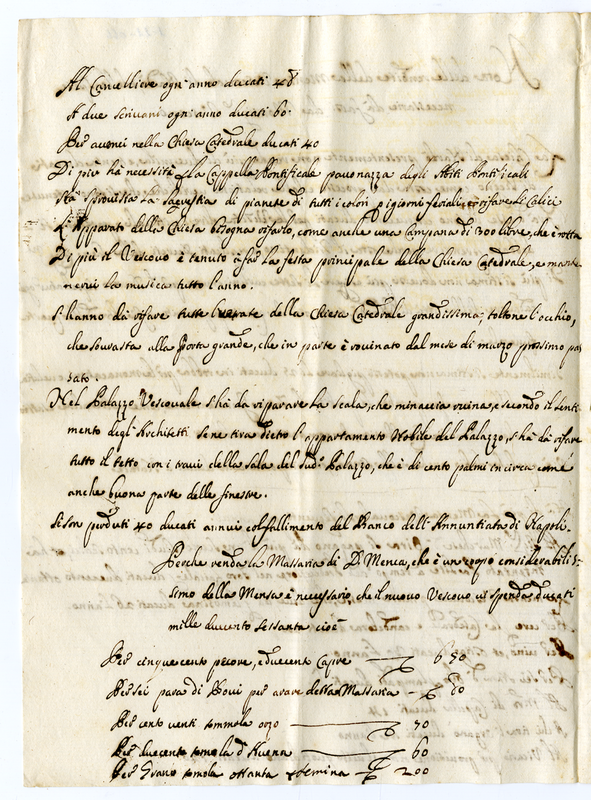 Al Cancelliere ogni anno ducati 48
A due scrivani ogni anno ducati 60.
Per avenei nella Chiesa Catedrale ducati 40
Di più hà necessità la Cappella Pontificale pavonazza degli Abiti Pontificali
Stà sprovista la sagrestia di pianete di tutti i colori p i giorni feriali, e rifare li Calici
L'Apparato della Chiesa bisogna rifarlo, come anche una Campana di 300 libre, che è rotta
Di più il Vescovo è tenuto à far la festa principale della Chiesa Catedrale, e mante
nervi la musica tutto l'anno.
S'hanno dà rifare tutte l'vetrate della Chiesa Catedrale grandissima, toltone l'occhio,
che sovrasta alla Porta grande, che in parte è rovinato dal mese di marzo prossimo pas
sato.
Nel Palazzo Vescovale s'hà da riparare la scala, che minaccia ruina, e secondo il senti
mento degl'Architetti se ne tira dietro l'appartamento Nobile del Palazzo, s'hà dà rifare
tutto il tetto con i travi della sala del sud.o Palazzo, che è di cento palmi in circa com'è
anche buona parte delle finestre.
Si son perduti 40 ducati annui col fallimento del Banco dell'Annuntiata di Napoli.
Perche renda la Massaria di D. Menca, che è un corpo considerabilis
simo della Mensa è necessario, che il nuovo Vescovo vi spenda ducati
mille ducento sessanta cioè
Per cinquecento pecore, e ducento Capre 650
Per sei para di Bovi per arare detta Massaria
Per cento venti tommola orzo 70
Per duecento tomola d'Avena 60
Per Grano tomola ottanta p semina 200